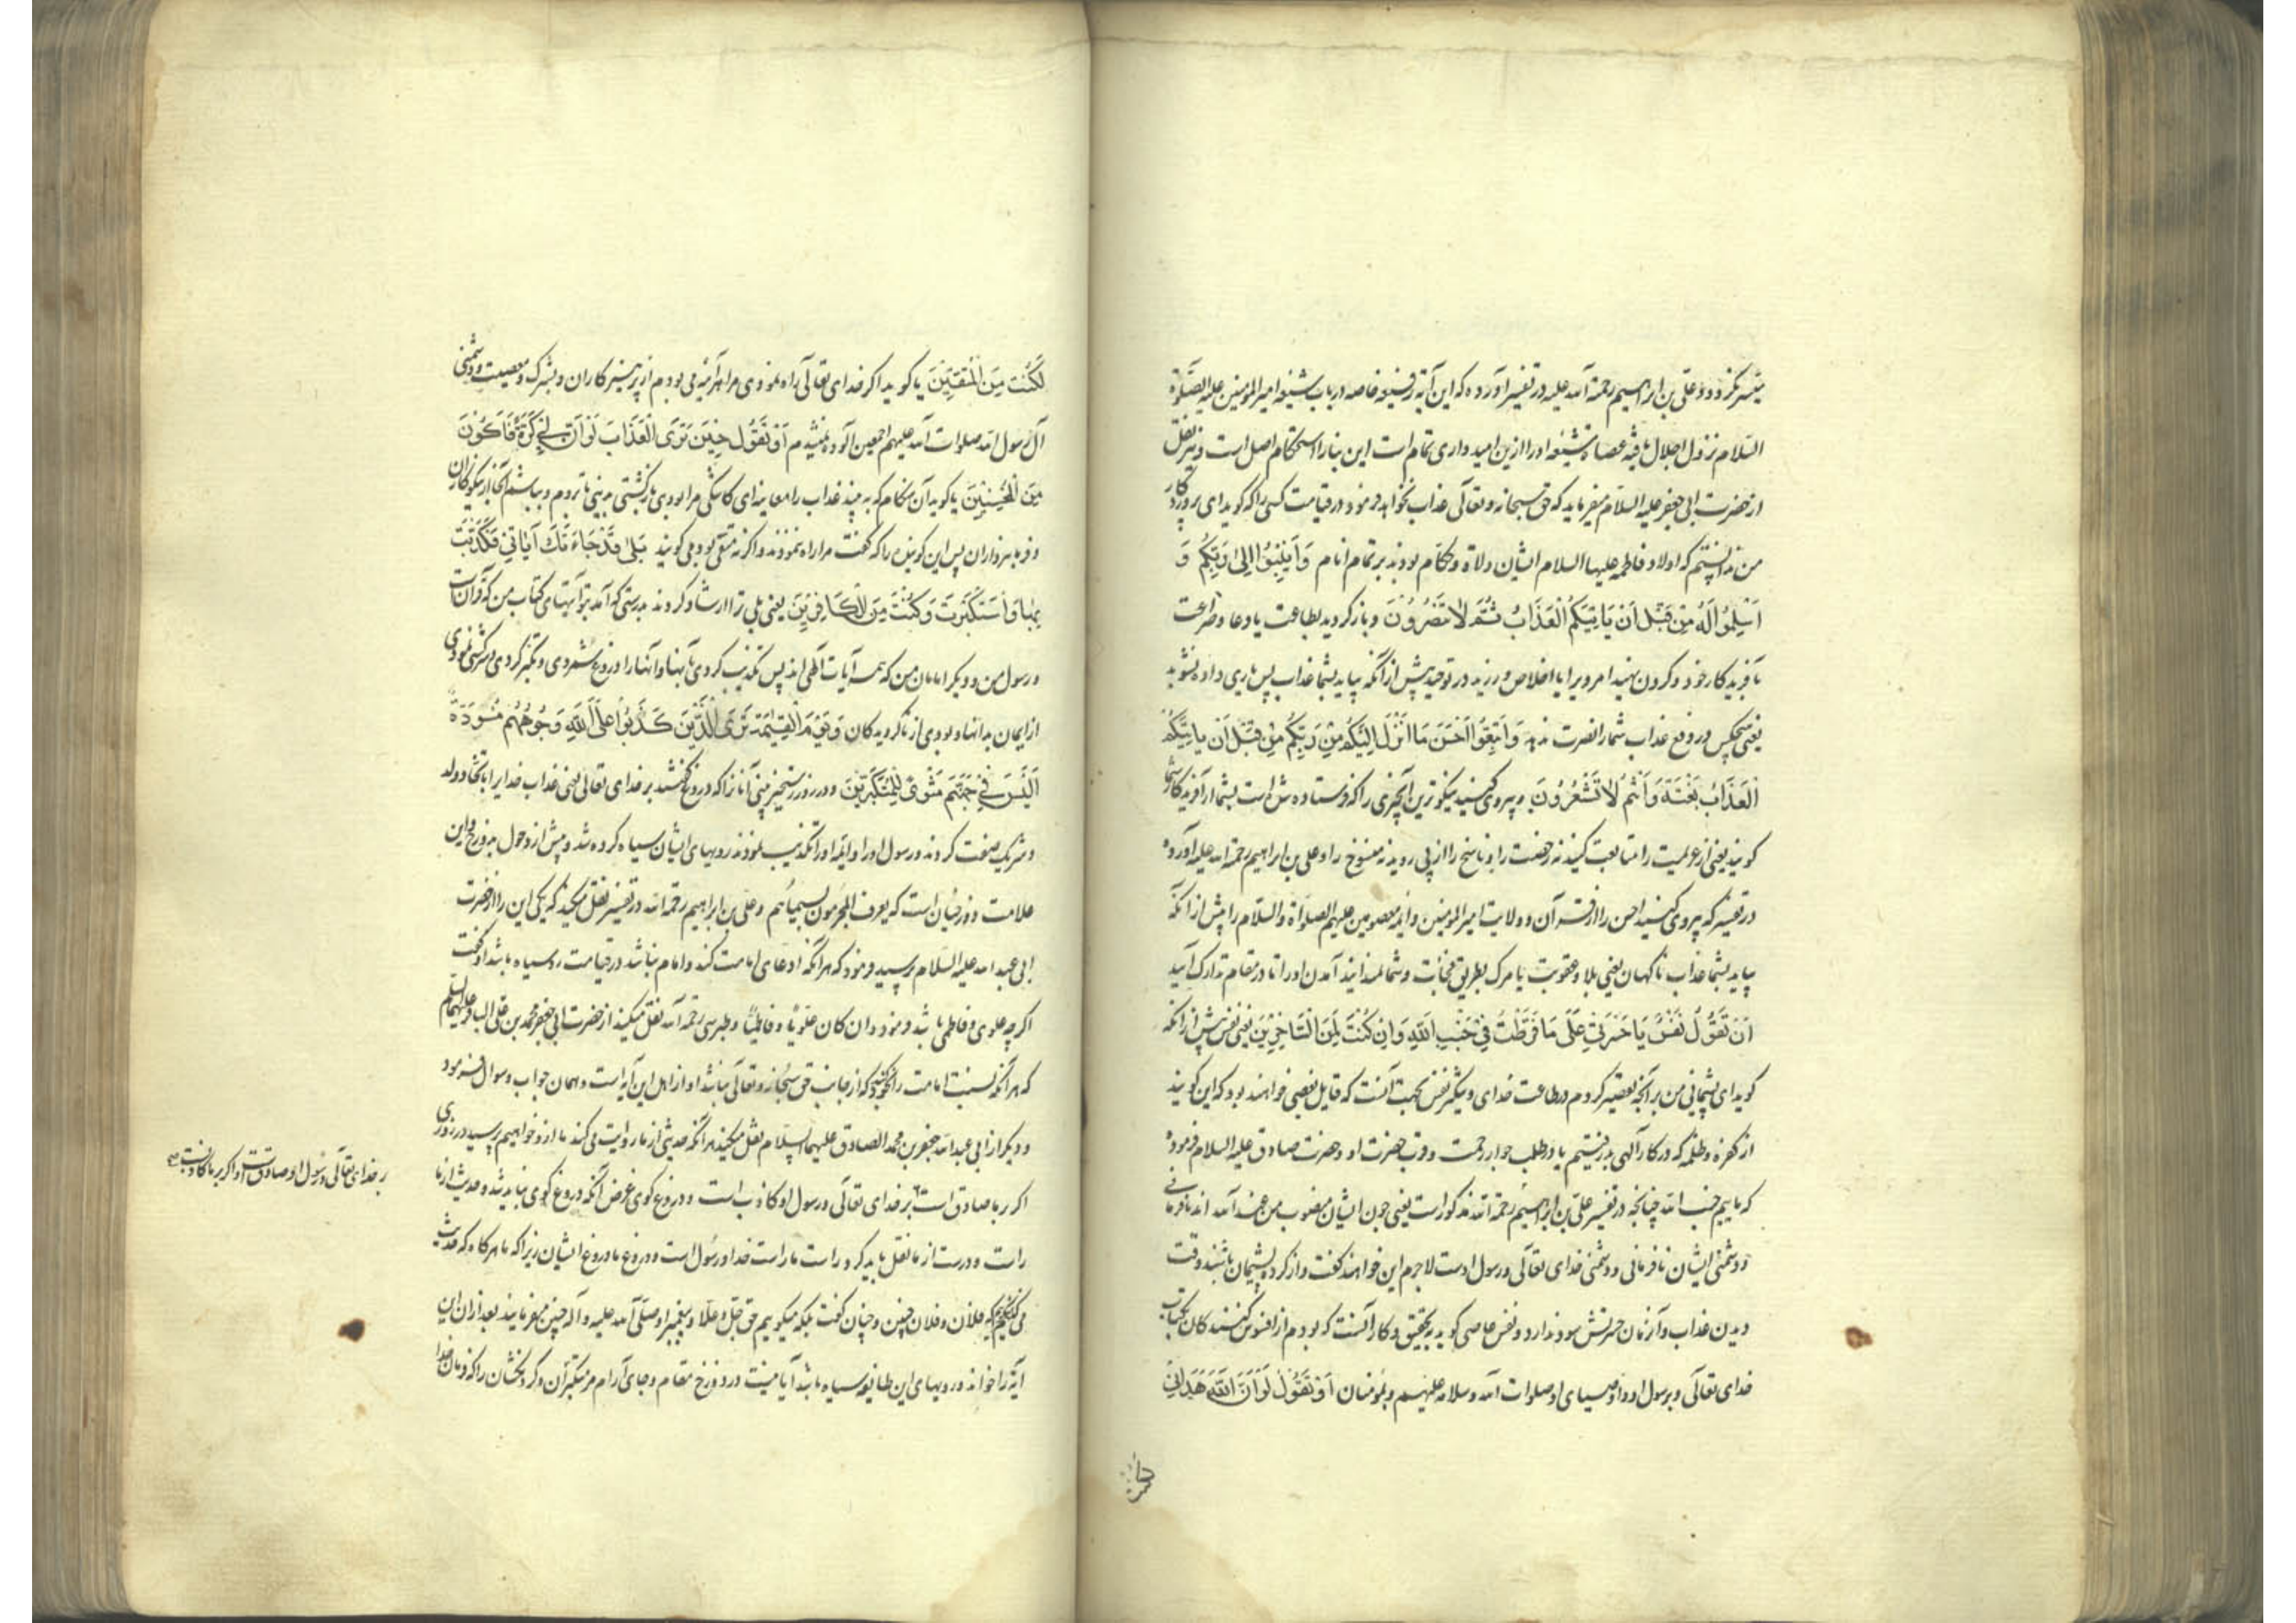 میسر نکردد و علی بن ابراهیم رحمة الله علیه در تفسیر آورده که این آیة رفیعه خاصه در باب شیعه امیر المؤمنین علیه الصلوة
السلام نزول اجلال یافته عصاة شیعه او را ازین امیدواری تمام است این بنا را استحکام اصل است و نیز نقل
از حضرت ابی جعفر علیه السلام میفرماید که حق سبحانه و تعالی عذاب نخواهد فرمود در قیامت کسی را که کوید ای پروردکار
من ندانستم که اولاد فاطمه علیها السلام ایشان ولاة و حکام بودند بر تمام انام وَاَنِیبُوا اِلیٰ رَبِّکُم وَ
اَسْلِمُوا لَهُ مِن قَبْلِ اَنْ یَاتِیَکُمُ الْعَذَابُ ثُمَّ لاٰ تُنصَرُونَ و باز کردید بطاعت یا دعا و ضراعت
بآفریدکار خود و کردن نهید امر ویرا یا اخلاص ورزید در توحید پیش از آنکه بیاید بشما عذاب پس یاری داده نشوید
یعنی هیچکس در دفع عذاب شما را نصرت ندهد وَاتَّبِعُوا اَحْسَنَ مَا اُنْزِلَ اِلَیْکُمْ مِنْ رَبِّکُم مِن قَبْلِ اَنْ یاتِیَکُمُ
الْعَذَابُ بَغْتَةً وَاَنْتُم لاٰ تَشْعُرُونَ و پیروی کنید نیکوترین آنچیزی را که فرستاده شده است بشما از آفریدکار شما
کویند یعنی از عزیمت را متابعت کنید نه رخصت را و ناسخ را از پی روید نه منسوخ را و علی بن ابراهیم رحمة الله علیه آورده
در تفسیر که پیروی کنید احسن را از قرآن و ولایت امیر المؤمنین و ائمه معصومین علیهم الصلواة و السلام را پیش از آنکه
بیاید بشما عذاب ناکهان یعنی بلا و عقوبت یا مرک بطریق فجأت و شما ندانید آمدن او را تا در مقام تدارک آئید
اَنْ تَقُولَ نَفْسٌ یَا حَسْرَتیٰ عَلَی مَا فَرَّطْتُ فِی جَنْبِ اللّٰهِ وَاِن کُنْتُ لَمِنَ السَّاخِرِینَ یعنی نفس پیش از آنکه
کوید ای پشیمانی من بر آنچه تقصیر کردم در طاعت خدای و تنکیر نفس بجهت آنست که قایل بعضی خواهند بود که این کویند
از کفره و ظلمه که در کار آلهی بدر رفتیم یا در طلب جوار رحمت و قرب حضرت او و حضرت صادق علیه السلام فرموده
که ماییم جنب الله چنانچه در تفسیر علی بن ابراهیم رحمة الله مذکور است یعنی چون ایشان منصوب من عند الله اند نافرمانی
و دشمنی ایشان نافرمانی و دشمنی خدای تعالی و رسول اوست لاجرم این خواهند کفت و از کرده پشیمان باشند وقت
دیدن عذاب و آنزمان حسرتش سود ندارد و نفس عاصی کوید بتحقیق و کار آنست که بودم از افسوس کنندکان بکتاب
خدای تعالی و برسول او و اوصیای او صلوات الله و سلامه علیهم و بمؤمنان اَوْ تَقُولَ لَوْ اَنَّ اللّٰهَ هَدَانِی
لَکُنْتُ مِنَ الْمُتَّقِینَ یا کوید اکر خدای تعالی راه نمودی مرا هر آینه می بودم از پرهیزکاران و بشرک و معصیت و دشمنی
آل رسول الله صلوات الله علیهم اجمعین آلوده نمیشدم اَوْ تَقُولَ حِینَ تَرَی الْعَذَابَ لَوْ اَنَّ لِی کَرَّةً فَاَکُونَ
مِنَ الْمُحْسِنِینَ یا کوید آن هنکام که به بیند عذاب را معاینه ای کاشکی مرا بودی بازکشتی بدنیا تا بروم و بباشم آنجا از نیکوکاران
و فرمانبرداران پس این کوینده را که کفت مرا راه ننمودند و اکر نه متقی بودمی کویند بَلیٰ قَدْ جَاءَتْكَ آیَاتِی فَکَذَّبْتَ
بِهَا وَاسْتَکْبَرْتَ وَکُنْتَ مِنَ الْکَافِرِینَ یعنی بلی ترا ارشاد کردند بدرستی که آمد بتو آیتهای کتاب من که قرآن است
و رسول من و دیکر امامان من که همه آیات آلهی اند پس تکذیب کردی بآنها و آنها را دروغ شمردی و تکبر کردی و سرکشی نمودی
از ایمان بدانها و بودی از ناکرویدکان وَیَوْمَ الْقِیٰمَةِ تَرَی الَّذِینَ کَذَبُوا عَلَی اللّٰهِ وُجُوهُهُم مُسْوَدَّةٌ
اَلَیْسَ فِی جَهَنَّمَ مَثْوًی لِلْمُتَکَبِّرِینَ و در روز رستخیز بینی آنانرا که دروغ کفتند بر خدای تعالی یعنی عذاب خدایرا باتخاذ ولد
و شریک صفت کردند و رسول او را و ائمه او را تکذیب نمودند رویهای ایشان سیاه کرده شد و پیش از دخول بدوزخ و این
علامت دوزخیان است که یعرف المجرمون بسیماهم و علی بن ابراهیم رحمة الله در تفسیر نقل میکند که یکی این را از حضرت
ابی عبد الله علیه السلام پرسید فرمود که هر آنکه ادعای امامت کند و امام نباشد در قیامت روسیاه باشد او کفت
اکر چه علوی و فاطمی باشد فرمود و ان کان علویًا و فاطمیًا و طبرسی رحمة الله نقل میکند از حضرت ابی جعفر محمد بن علی الباقر علیهما السلم
که هر آنکه نسبت امامت را بخود کند که از جانب حق سبحانه و تعالی نباشد او از اهل این آیه است و همان جواب و سوال فرمود
و دیکر از ابی عبد الله جعفر بن محمد الصادق علیهما السلام نقل میکند هر آنکه حدیثی از ما روایت می کند ما از و خواهیم پرسید در روزی
اکر بر ما صادق است بر خدای تعالی و رسول او کاذب است و دروغ کوی غرض آنکه دروغ کوی نباید شد و حدیث از ما
راست و درست از ما نقل باید کرد و راست ما راست خدا و رسول است و دروغ ما دروغ ایشان زیرا که ما هرکاه که حدیث
می کنیم نمیکوییم که فلان و فلان چنین و چنان کفت بلکه میکوییم حق جل و علا و پیغمبر او صلی الله علیه و آله چنین میفرمایند بعد از ان این
آیة را خواند و رویهای این طائفه سیاه باشد آیا نیست در دوزخ مقام و جای آرام مر متکبران و کردنکشان را که فرمان خدا
بر خدای تعالی و رسول او صادق است و اکر بر ما کاذب است صح